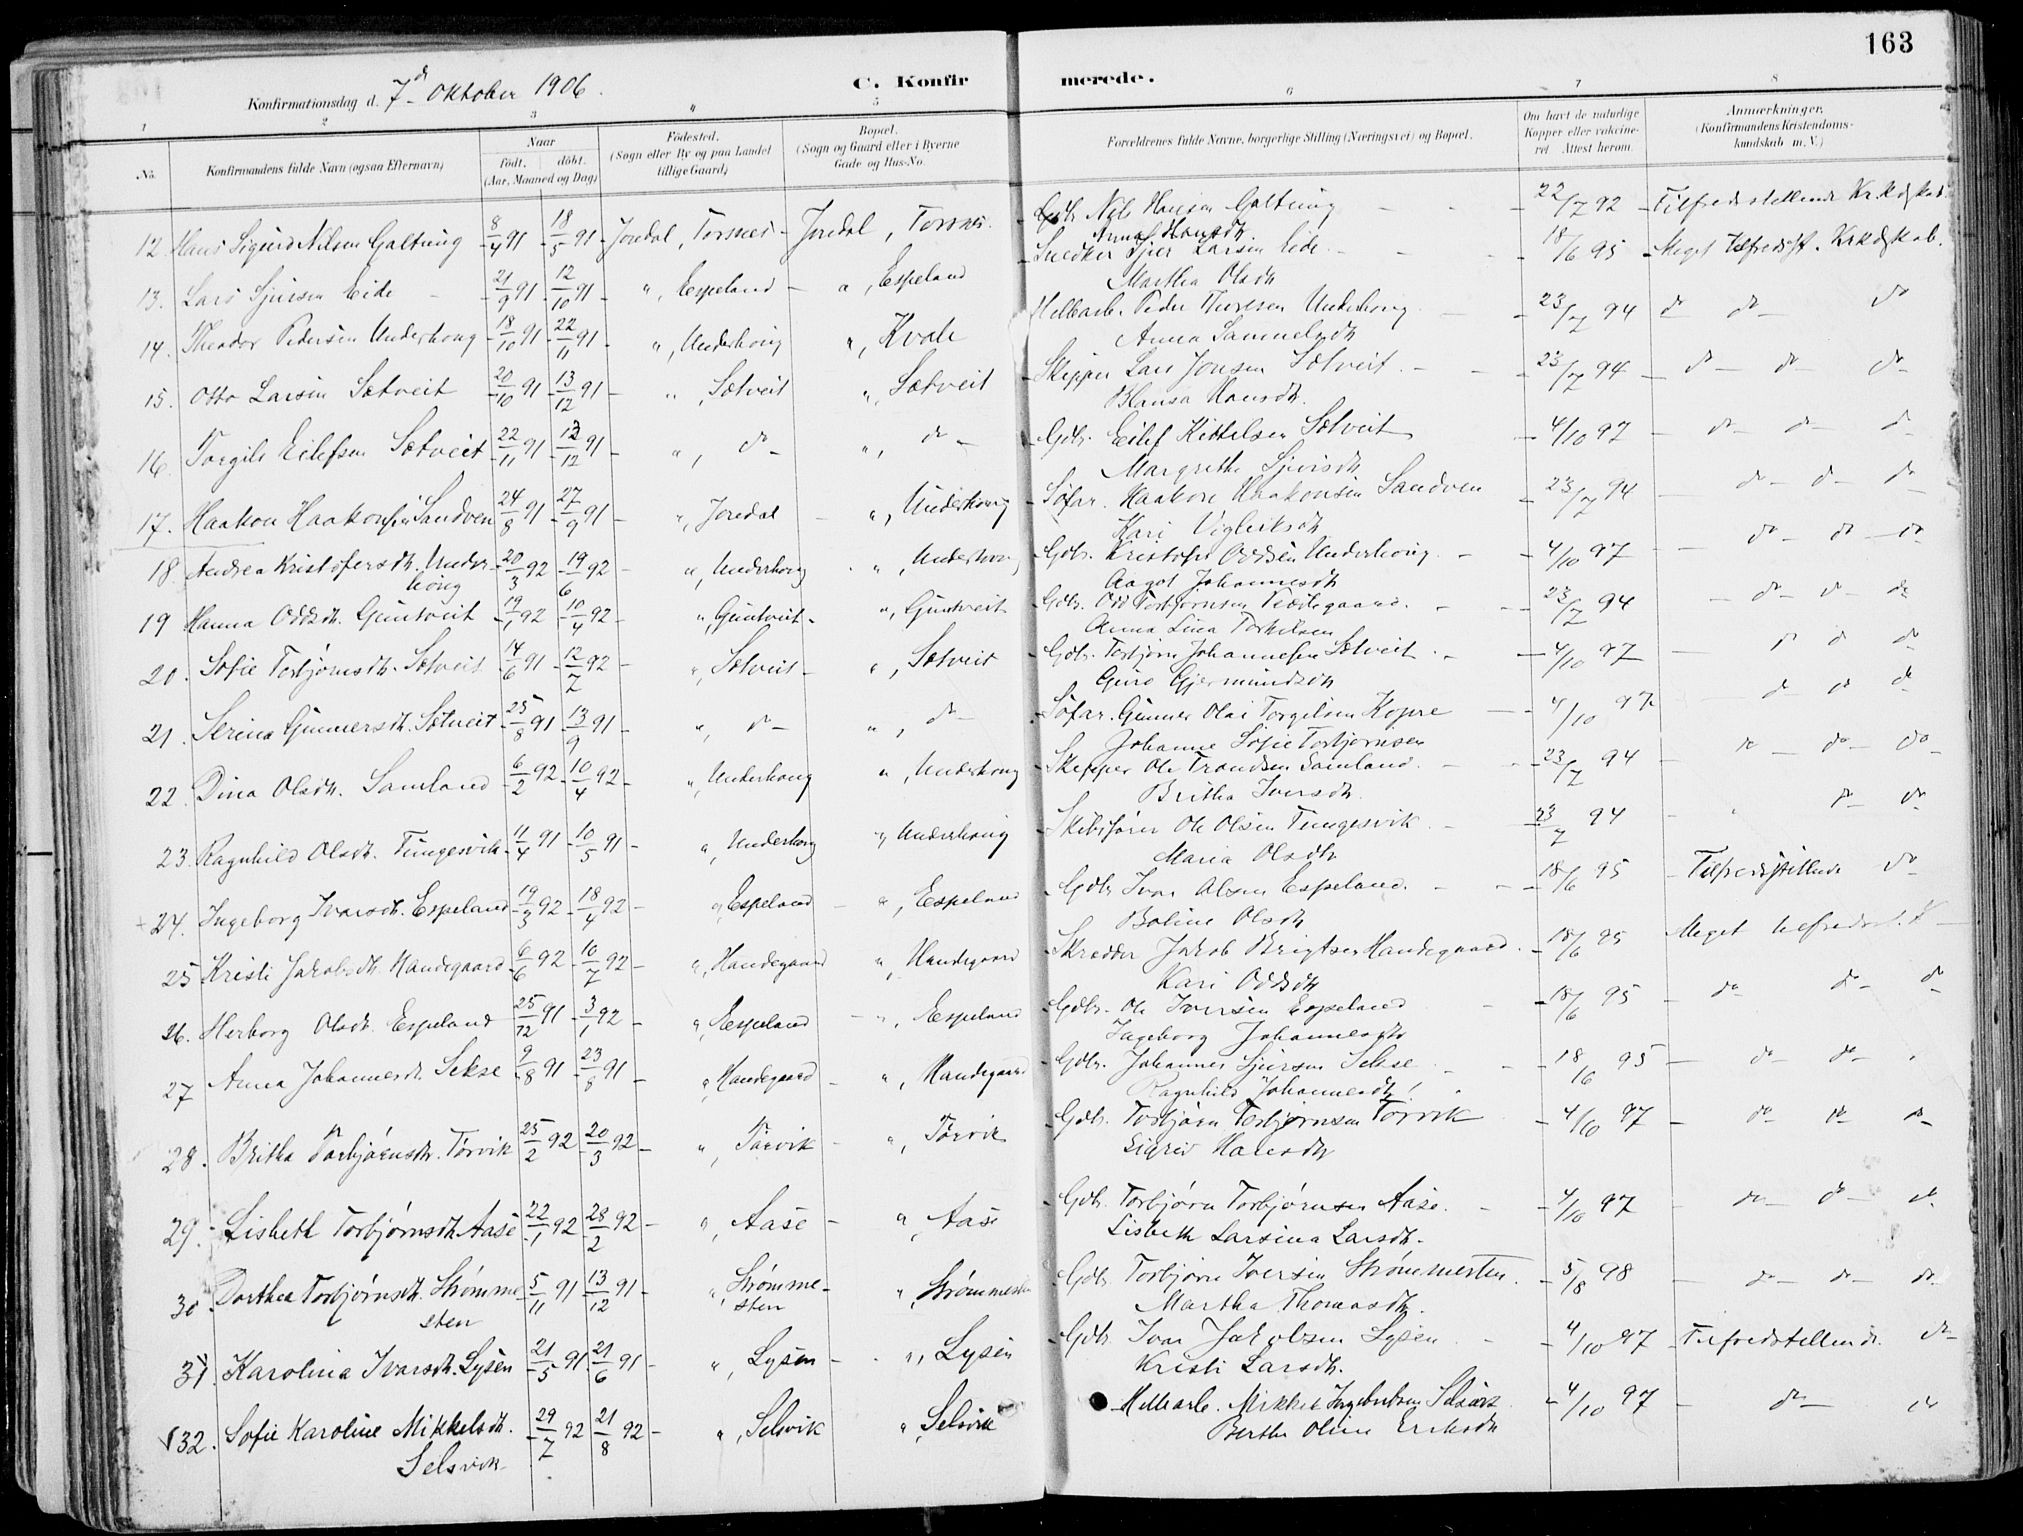 163
Konfirmationsdag d. 7de Oktober 1906.
C. Konfirmerede.
1 2 3 4 5 6 7 8
No. Konfirmandens fulde Navn (ogsaa Efternavn) Naar født. døbt. (Aar, Maaned og Dag) Fødested. (Sogn eller By og paa Landet tillige Gaard) Bopæl. (Sogn og Gaard eller i Byerne Gade og Hus-No. Forældrenes fulde Navne, borgerlige Stilling (Næringsvei) og Bopæl. Om havt de naturlige Kopper eller vakcineret. Attest herom. Anmærkninger. (Konfirmandens Kristendomskundskab m. V.)
12. Hans Sigurd Nilsen Galtung 8/4 91 18/5 91 Jondal, Torsnes Jondal, Torsnes. Gdb. Nils Hansen Galtung 22/7 92 Tilfredsstellende Kr.kdskab
Anna Hansdtr.
13. Lars Sjursen Eide 21/9 91 12/10 91 ", Espeland ", Espeland Snedker Sjur Larsen Eide 18/6 95 Meget tilfredsst. Krkdskab.
Martha Olsdtr
14. Theodor Pedersen Underhoug 18/10 91 22/11 91 ", Underhoug ", Kvale Peder Underhoug 23/7 94 do do do
Anna Samuelsdtr
15. Otto Larsen Sætveit 20/10 91 13/12 91 ", Sætveit ", Sætveit Skipper Lars Jonsen Sætveit 23/7 94 do do do
Hansdtr.
16. Torgils Eilefsen Sætveit 22/11 91 13/12 91 ", do ", do Gdb. Eilef Kittelsen Sætveit 4/10 97 do do do
Margrethe Sjursdtr
17. Haakon Haakonsen Sandven 24/8 91 27/9 91 ", Jondal ", Underhoug Søfar. Haakon Haakonsen Sandven 23/7 94 do do do
Kari Vigleiksdtr
18 Andrea Kristofersdtr. Underhoug 20/3 92 19/6 92 ", Underhoug ", Underhoug Gdb. Kristofer Oddsen Underhoug 4/10 97 do do do
Aagot Johannesdtr
19 Hanna Oddsdtr. Guntveit 19/1 92 10/4 92 ", Guntveit ", Guntveit Gdb. Odd Torbjørnsen 23/7 94 do do do
Anna Lina Torkelsen
20. Sofie Torbjørnsdtr. Sætveit 14/6 91 12/7 92 ", Sætveit ", Sætveit Gdb. Torbjørn Johannessen Sætveit 4/10 97 do do do
Guro Gjermundsdtr
21. Serina Gunnersdtr. Sætveit 25/8 91 13/9 91 ", do ", do Søfar. Gunner Olai Torgilsen Kopre 4/10 97 do do do
Johanne Sofie Torbjørnsen
22. Dina Olsdtr. Samland 6/2 92 10/4 92 ", Underhoug ", Underhoug Skipper Ole Trondsen Samland 23/7 94 do do do
Britha Iversdtr.
23. Ragnhild Olsdtr. Tungesvik 11/4 91 10/5 91 ", Underhoug ", Underhoug Skibsfører Ole Olsen Tungesvik 23/7 94 " do do
Maria Olsdtr
24. Ingeborg Ivarsdtr. Espeland 19/3 92 18/4 92 ", Espeland ", Espeland Gdb. Ivar Olsen Espeland 18/6 95 Tilfredsstillende do
Boline Olsdtr
25 Kristi Jakobsdtr. Handegaard 6/6 92 10/7 92 ", Handegaard ", Handegaard Skrædder Jakob Brigtsen Handegaard 18/6 95 Meget tilfredsst. K
Kari Oddsdtr
26. Herborg Olsdtr. Espeland 25/12 91 3/1 92 ", Espeland ", Espeland Gdb. Ole Iversen Espeland 18/6 95 do do do
Ingeborg Johannesdtr
27 Anna Johannesdtr. Sekse 9/8 91 23/8 91 ", Handegaard ", Handegaard Gdb. Johannes Sjursen Sekse 18/6 95 do do
Ragnhild Johannesdtr.
28. Britha Torbjørnsdtr. Tørvik 25/2 92 20/3 92 ", Tørvik ", Tørvik Gdb. Torbjørn Torbjørnsen Tørvik 4/10 97 do do do
Sigrid Hansdtr
29. Lisbeth Torbjørnsdtr. Aase 22/1 92 28/2 92 ", Aase ", Aase Gdb. Torbjørn Torbjørnsen Aase. 4/10 97 do do do
Lisbeth Larsina Larsdtr.
30. Dorthea Torbjørnsdtr. Strømmesten 5/11 91 13/12 91 ", Strømmesten ", Strømmesten Gdb. Torbjørn Iversen Strømmesten. 5/8 98 do do do
Martha Thomasdtr.
31. Karolina Ivarsdtr. Lysen 21/5 91 21/6 91 ", Lysen ", Lysen Gdb. Ivar Jakobsen Lysen 4/10 97 Tilfredsstellende. do
Kristi Larsdtr.
32. Sofie Karoline Mikkelsdtr. Selsvik 29/7 92 21/8 92 ", Selsvik ", Selsvik Mikkel Ingebretsen Selsvik 4/10 97 do do
Berthe Oline Eriksdtr